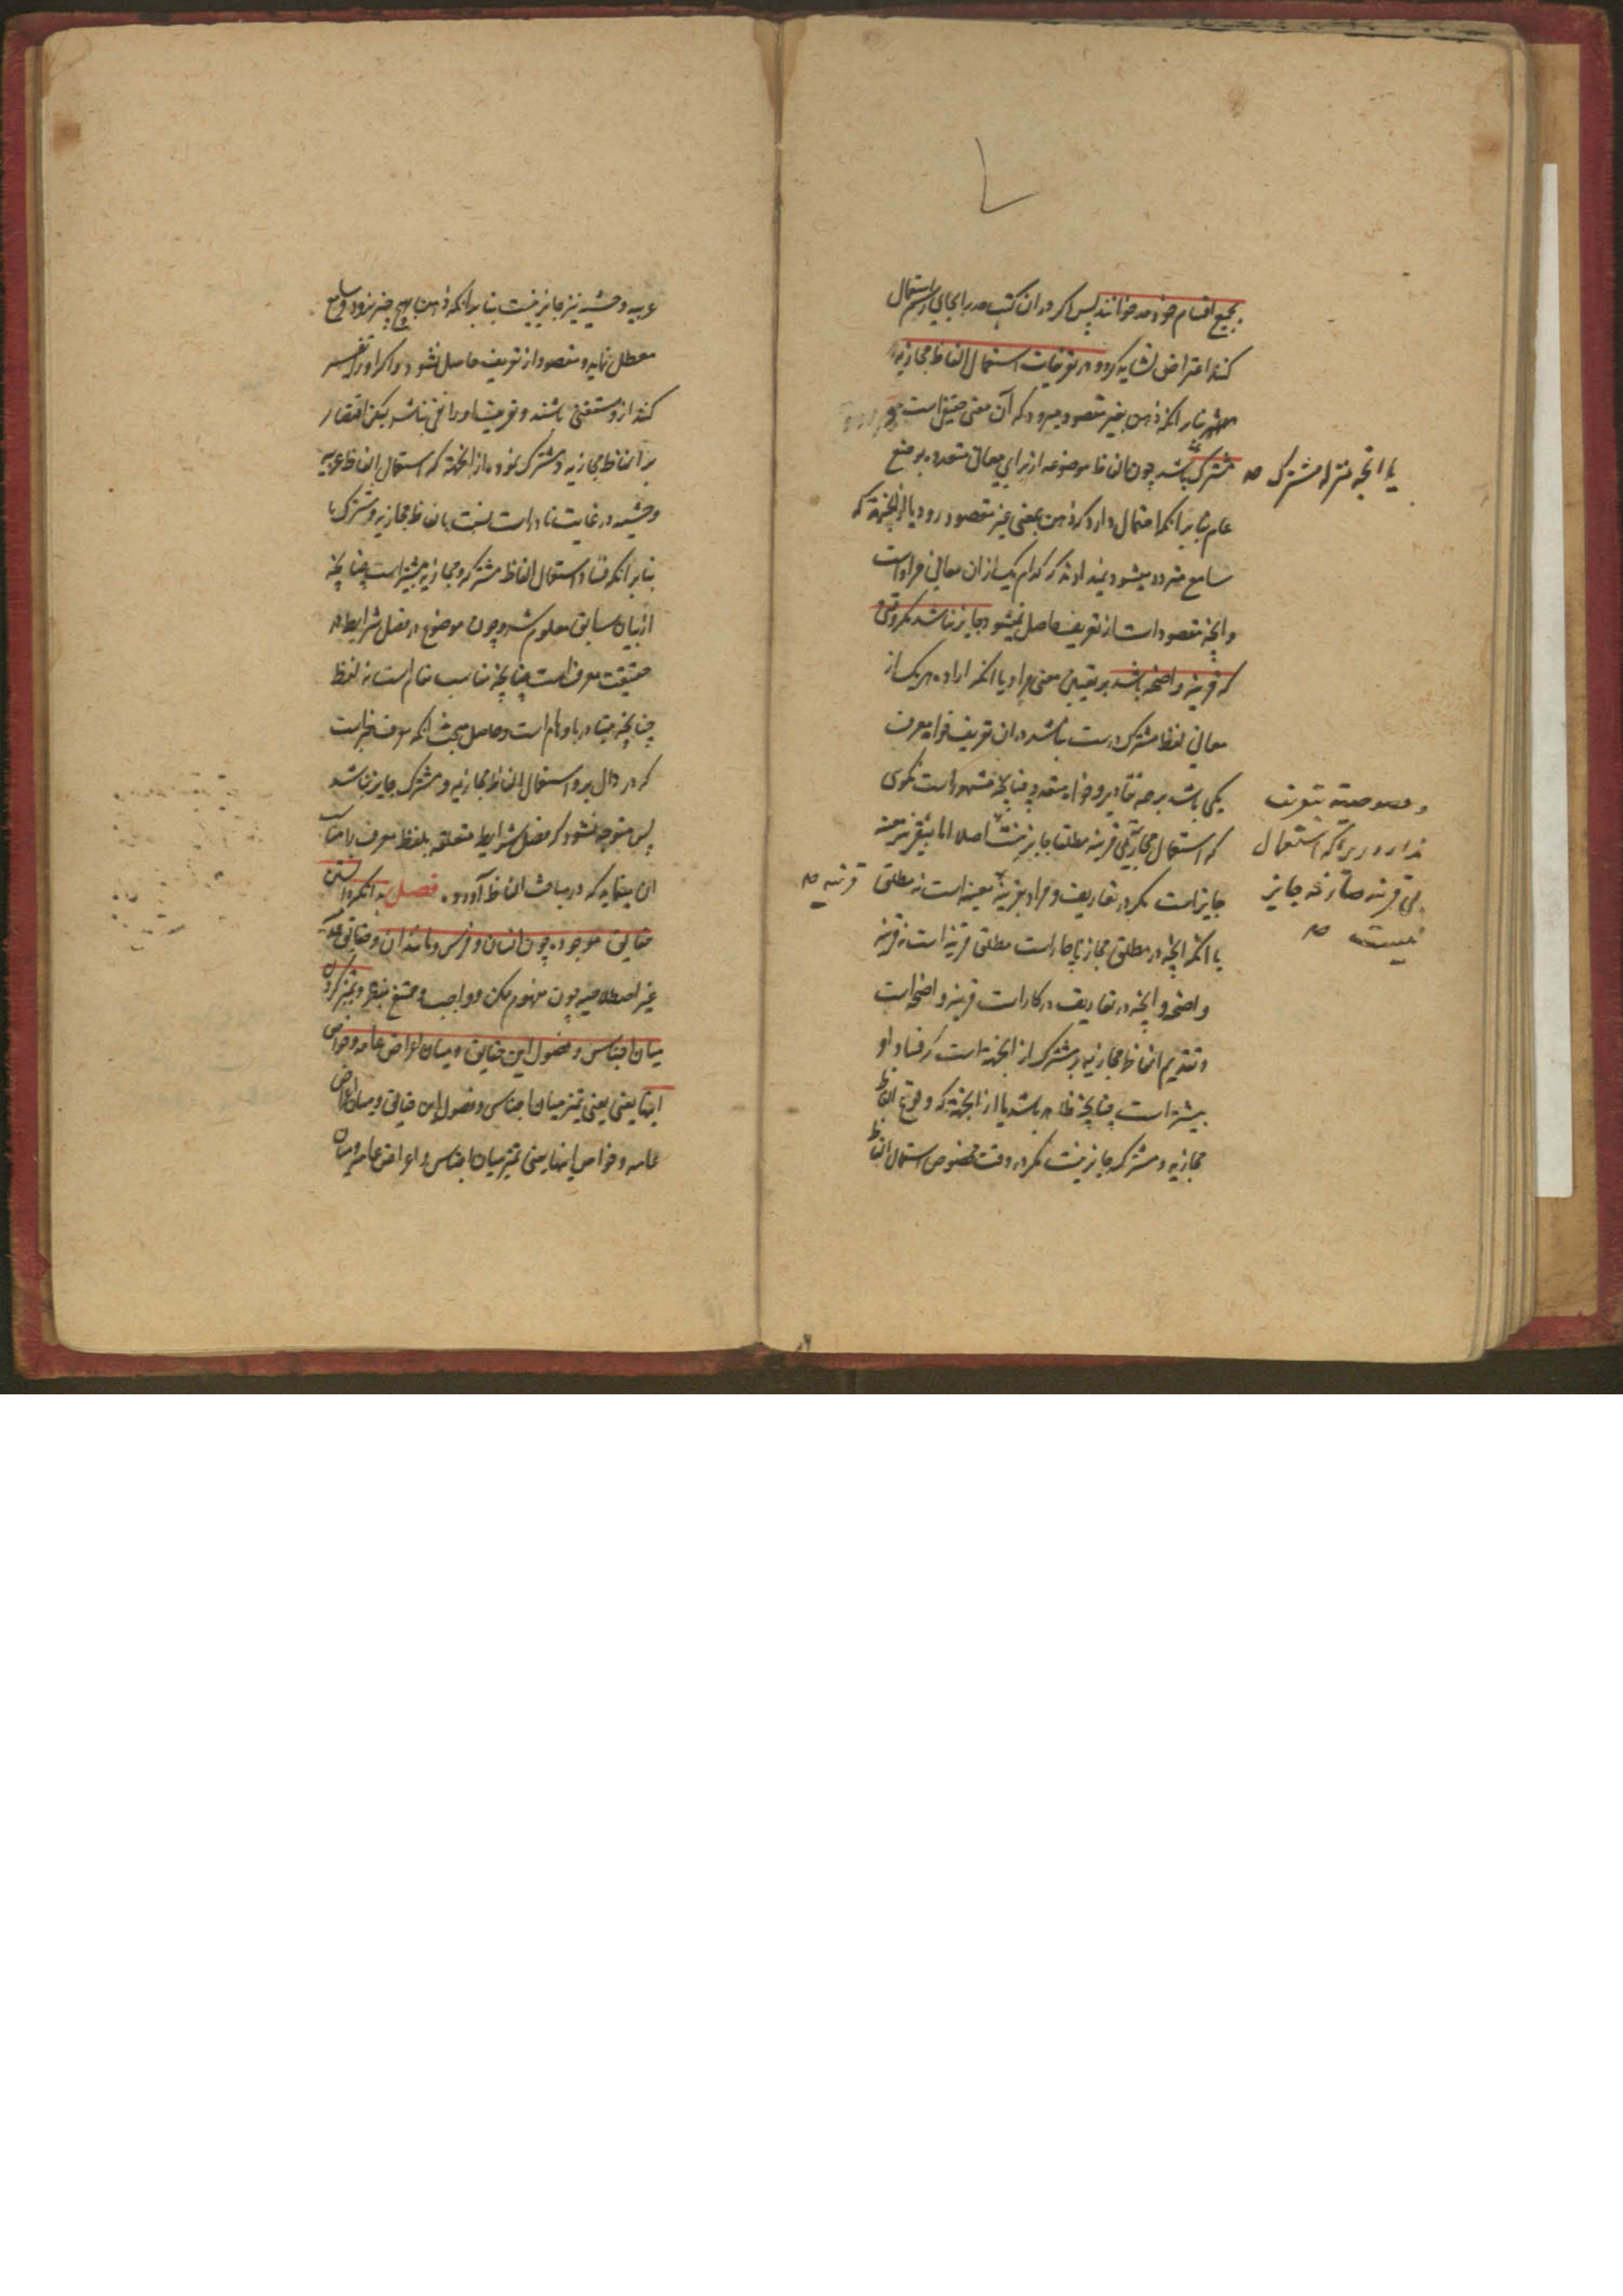 بجمیع اقسام خود حد خوانند پس اگر در آن کتب حد را بجای رسم استعمال
کنند اعتراض نشاید کرد و در تعریفات استعمال الفاظ مجازیه
بنابر آنکه ذهن بغیر مقصود میرود که آن معنی حقیقی است
مشترک باشد چون الفاظ موضوعه از برای معانی متعدده بوضع
یا آنچه بمنزله مشترک صح
عام بنابر آنکه احتمال دارد که ذهن بمعنی غیر مقصود رود یا از آنجهة که
سامع متردد میشود و نمیداند که کدام یک از ان معانی مراد است
و آنچه مقصود است از تعریف حاصل نمیشود جایز نباشد مگر وقتی
که قرینه واضحه باشد بر تعیین معنی مراد یا آنکه اراده هر یک از
معانی لفظ مشترک درست باشد در ان تعریف خواه معرف
یکی باشد بر همه تقادیر و خواه متعدد چنانچه مشهور است نگوی
که استعمال مجاز بی قرینه مطلقا جایز نیست اصلا اما بیقرینه معینه
و خصوصیته بتعریف
ندارد زیرا که استعمال
بی قرینه صارفه جایز
نیست صح
جایز است مگر در تعاریف و مراد بقرینه معینه است نه مطلق قرینه صح
یا آنکه آنچه در مطلق مجاز ناچار است مطلق قرینه است نه قرینه
واضحه و آنچه در تعاریف در کار است قرینه واضحه است
و تقدیم الفاظ مجازیه و مشترک از آنجهة است که فساد او
بیشتر است چنانچه ظاهر باشد یا از آنجهة که وقوع الفاظ
مجازیه و مشترکه جایز نیست مگر در وقت مخصوص استعمال الفاظ
غریبه وحشیه نیز جایز نیست بنابر آنکه ذهن بهیچ چیز نرود و سامع
معطل نماید و مقصود از تعریف حاصل نشود و اگر او را تفسیر
کنند ازو مستغنی باشند و تعریف او را نفی نباشد لیکن اقتصار
بر الفاظ مجازیه و مشترک نموده از آنجهة که استعمال الفاظ غریبه
وحشیه در غایت نادر است نسبت بالفاظ مجازیه و مشترک یا
بنابر آنکه فساد استعمال الفاظ مشترکه و مجازیه بیشتر است چنانچه
از بیان سابق معلوم شد و چون موضوع در فصل شرایط در
حقیقت معرف است چنانچه مناسب مقام است نه لفظ
چنانچه متبادر باوهام است و حاصل بحث آنکه معرف چیزیست
که در دال برو استعمال الفاظ مجازیه و مشترک جایز نباشد
پس متوجه نشود که فصل شرایط متعلقه بلفظ معرف را مناسب
آن مینماید که در مباحث الفاظ آورده فصل بدانکه دانستن
حقایق موجوده چون انسان و فرس و مانند آن و حقایق
غیر اصطلاحیه چون مفهوم ممکن و واجب و ممتنع و تمیز کردن
میان اجناس و فصول این حقایق و میان اعراض عامه و خواص
اینها یعنی یعنی تمیز میان اجناس و فصول این حقایق و میان اعراض
عامه و خواص اینها یعنی تمیز میان اجناس و اعراض عامه و میان